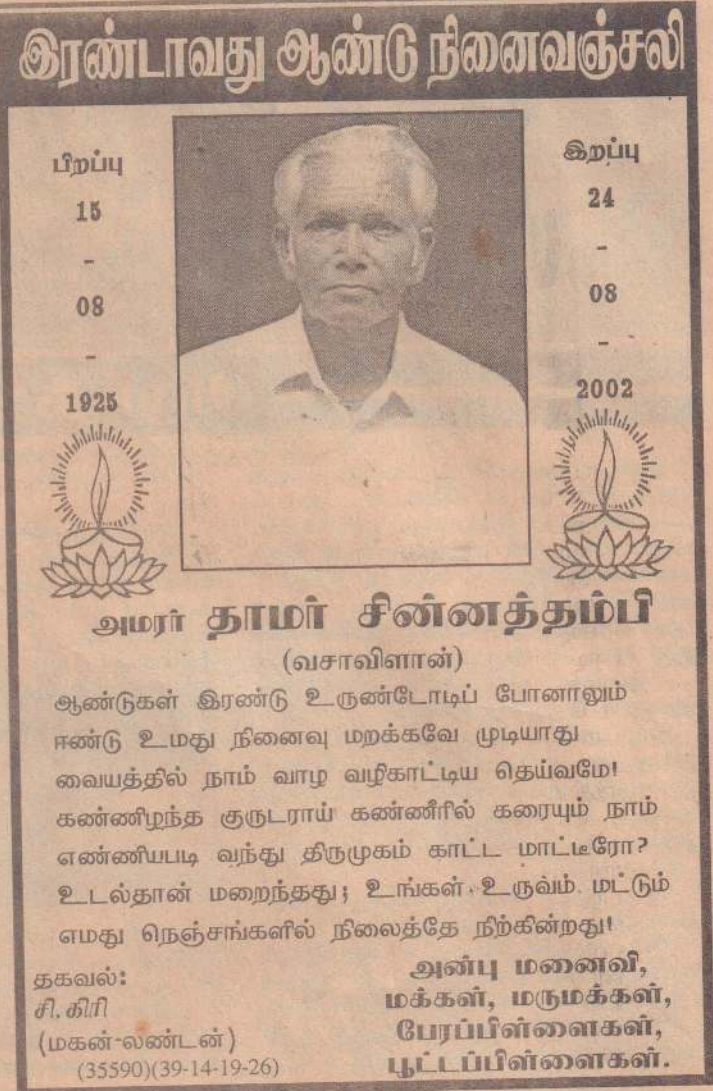 இரண்டாவது ஆண்டு நினைவஞ்சலி
பிறப்பு
15
-
08
-
1925
இறப்பு
24
-
08
-
2002
அமரர் தாமர் சின்னத்தம்பி
(வசாவிளான்)
ஆண்டுகள் இரண்டு உருண்டோடிப் போனாலும்
ஈண்டு உமது நினைவு மறக்கவே முடியாது
வையத்தில் நாம் வாழ வழிகாட்டிய தெய்வமே!
கண்ணிழந்த குருடராய் கண்ணீரில் கரையும் நாம்
எண்ணியபடி வந்து திருமுகம் காட்ட மாட்டீரோ?
உடல்தான் மறைந்தது; உங்கள் உருவம் மட்டும்
எமது நெஞ்சங்களில் நிலைத்தே நிற்கின்றது!
தகவல்:
சி.கிரி
(மகன்-லண்டன்)
(35590)(39-14-19-26)
அன்பு மனைவி,
மக்கள், மருமக்கள்,
பேரப்பிள்ளைகள்,
பூட்டப்பிள்ளைகள்.